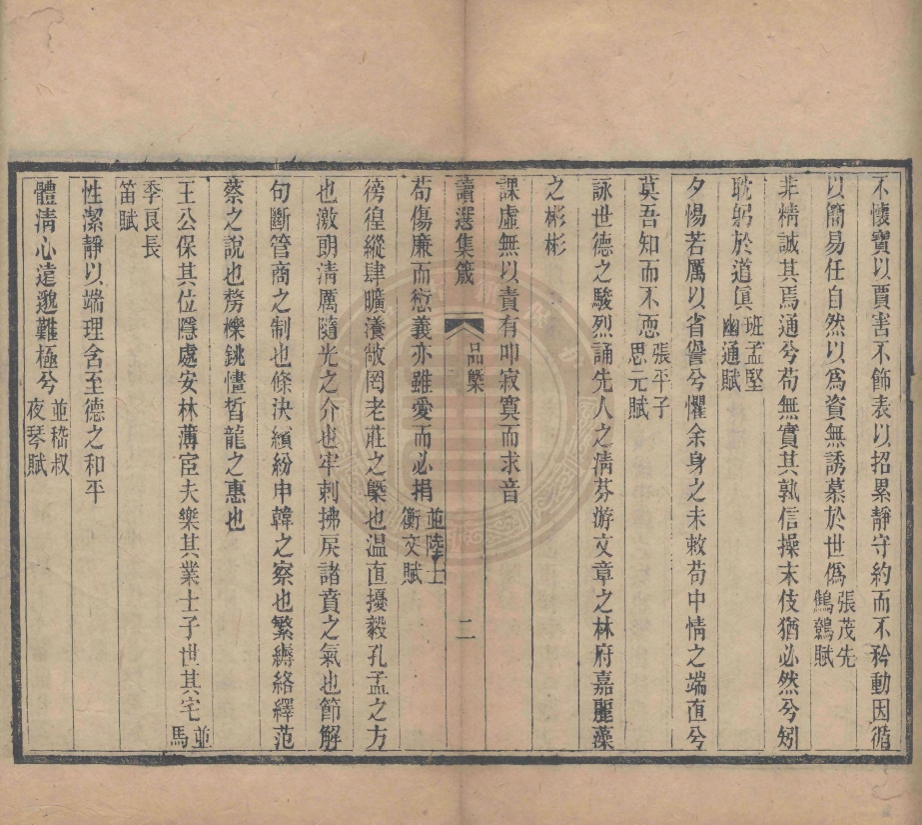 不懷寶以賈害不飾表以招累靜守約而不矜動因循
以簡易任自然以爲資無誘慕於世僞張茂先鷦鷯賦
非精誠其焉通兮苟無實其孰信操末伎猶必然兮矧
耽躬於道眞班孟堅幽通賦
夕惕若厲以省諐兮懼余身之未敕苟中情之端直兮
莫吾知而不恧張平子思元賦
詠世德之駿烈誦先人之清芬游文章之林府嘉麗藻
之彬彬
課虛無以責有叩寂寞而求音
讀選集箴
品槩
二
苟傷廉而愆義亦雖愛而必捐並陸士衡文賦
徬徨縱肆曠瀁敞罔老莊之槩也温直擾毅孔孟之方
也激朗清厲隨光之介也牢剌拂戾諸賁之氣也節解
句斷管商之制也條決繽紛申韓之察也繁縟絡繹范
蔡之說也勞櫟銚㦎晳龍之惠也
王公保其位隱處安林薄宦夫樂其業士子世其宅並馬
季良長笛賦
性潔靜以端理含至德之和平
體清心遠邈難極兮並嵇叔夜琴賦